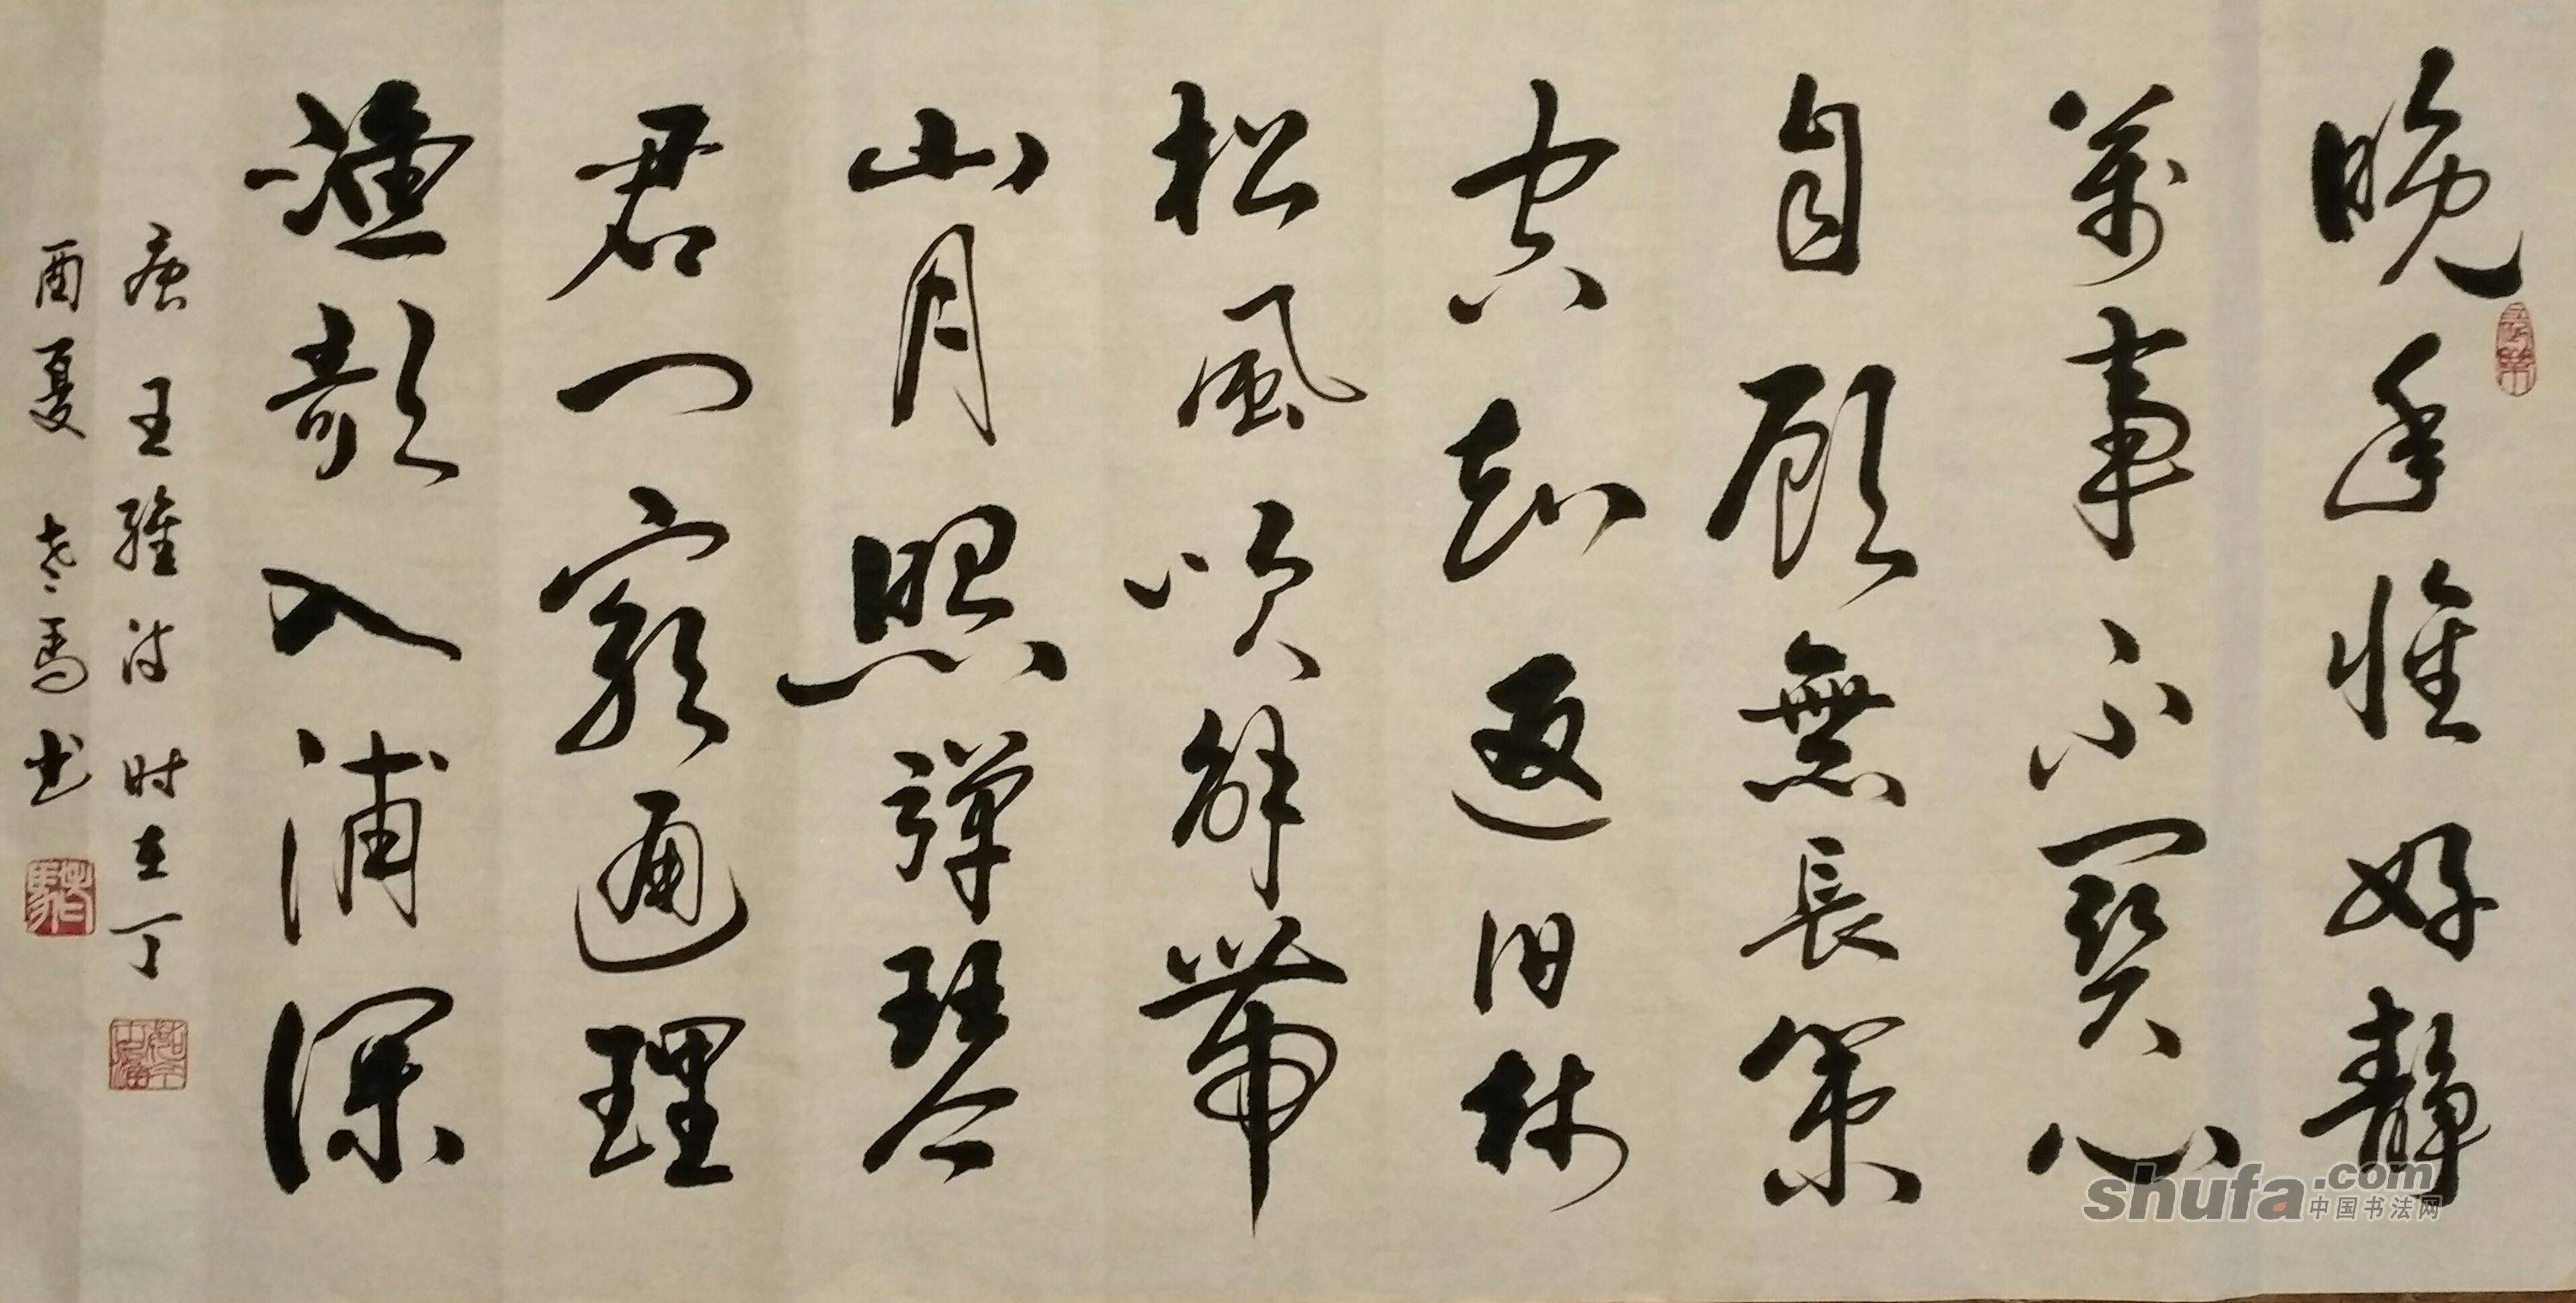 晚年惟好靜
萬事不關心
自顧無長策
空知返旧林
松風吹解帶
山月照彈琴
君问窮通理
漁歌入浦深
唐王維诗时在丁
酉夏老馬书
shufa.com
中国书法网